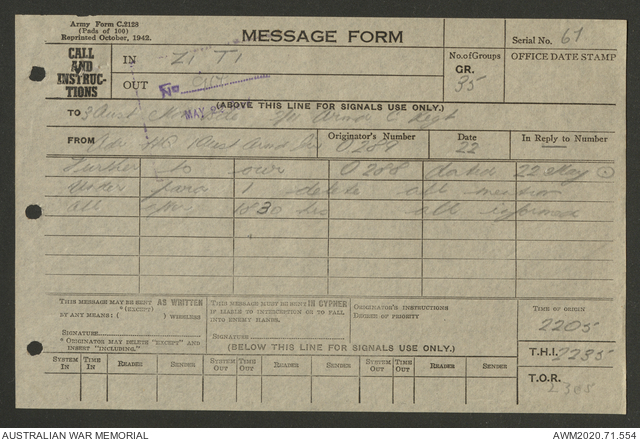 Army Form C.2128
(Pads of 100)
Reprinted October, 1942.
MESSAGE FORM
Serial No. 67
CALL AND INSTRUCTIONS
IN ZI TI
OUT
No. of Groups
GR. 35
OFFICE DATE STAMP
No
MAY
(ABOVE THIS LINE FOR SIGNALS USE ONLY.)
TO 3 Aust 2/11 Armd C Regt
FROM Adv HQ 1 Aust Armd
Originator's Number 0289
Date 22
In Reply to Number
Further to our 0288 dated 22 May
Under para 1 delete all mention
All after 1830 hrs all informed
THIS MESSAGE MAY BE SENT AS WRITTEN
*(EXCEPT)
BY ANY MEANS: ( ) WIRELESS
SIGNATURE
* ORIGINATOR MAY DELETE "EXCEPT" AND
INSERT "INCLUDING."
THIS MESSAGE MUST BE SENT IN CYPHER
IF LIABLE TO INTERCEPTION OR TO FALL
INTO ENEMY HANDS.
SIGNATURE
ORIGINATOR'S INSTRUCTIONS
DEGREE OF PRIORITY
TIME OF ORIGIN
2205
(BELOW THIS LINE FOR SIGNALS USE ONLY.)
T.H.I. 2235
SYSTEM IN TIME IN READER SENDER SYSTEM OUT TIME OUT READER SENDER SYSTEM OUT TIME OUT READER SENDER
T.O.R.
AUSTRALIAN WAR MEMORIAL
AWM2020.71.554